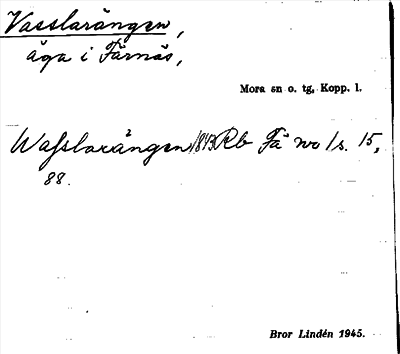 Vasslarängen,
äga i Färnäs,
Mora sn o. tg, Kopp. l.
Wasslarängen, 1843 Rb Fä no 1 s. 15,
88.
Bror Lindén 1945.